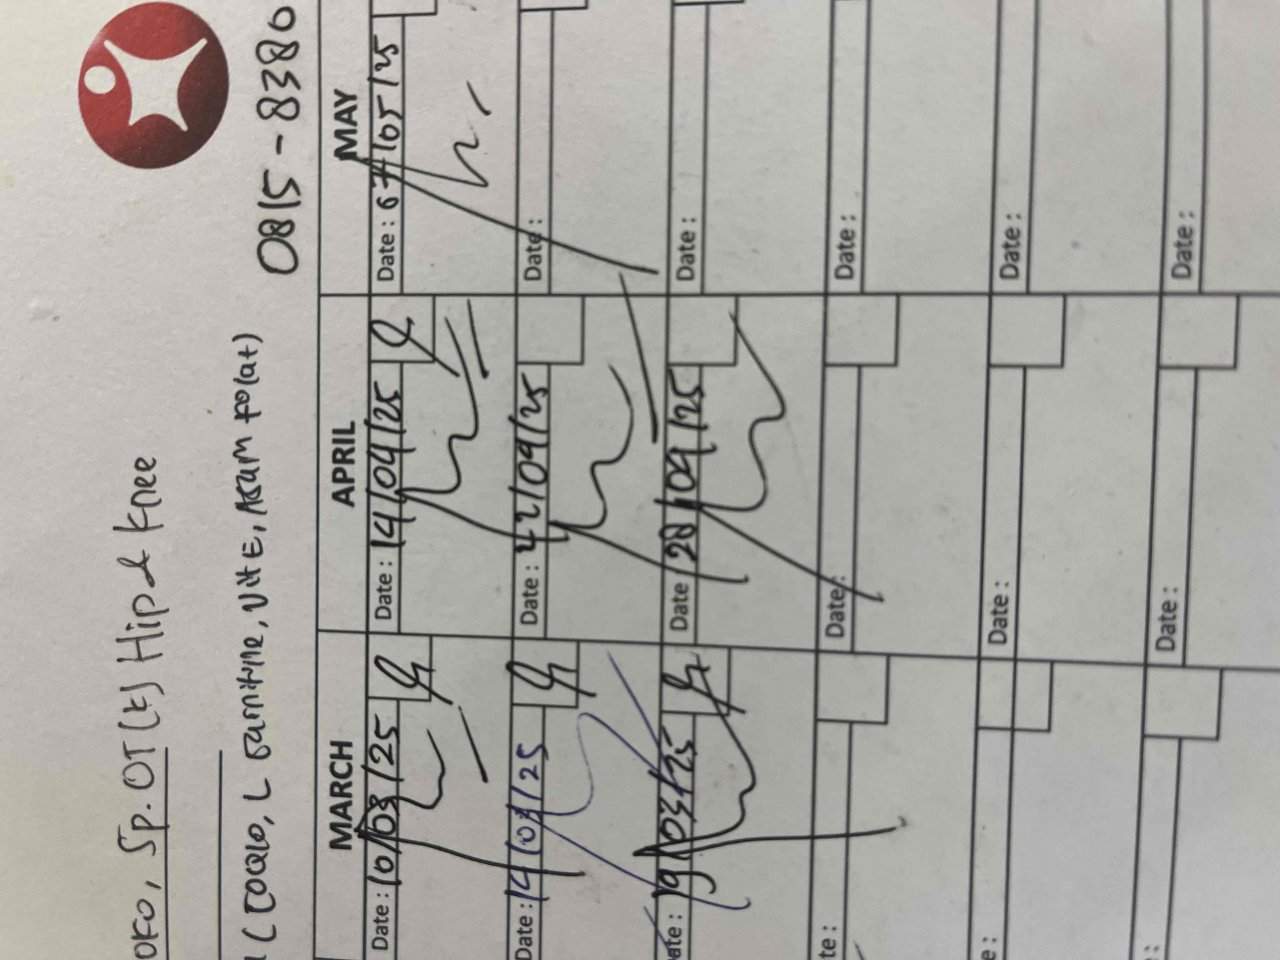 oko, Sp.OT(K) Hip & Knee
(COQ10, L Carnitine, Vit E, Asam Folat)
0815-8380
MARCH APRIL MAY
Date: 10/03/25 Date: 14/04/25 Date: 67/05/25
Date: 14/03/25 Date: 22/04/25 Date:
ate: 19/03/25 Date 28/04/25 Date:
te: Date: Date:
e: Date: Date:
: Date: Date: